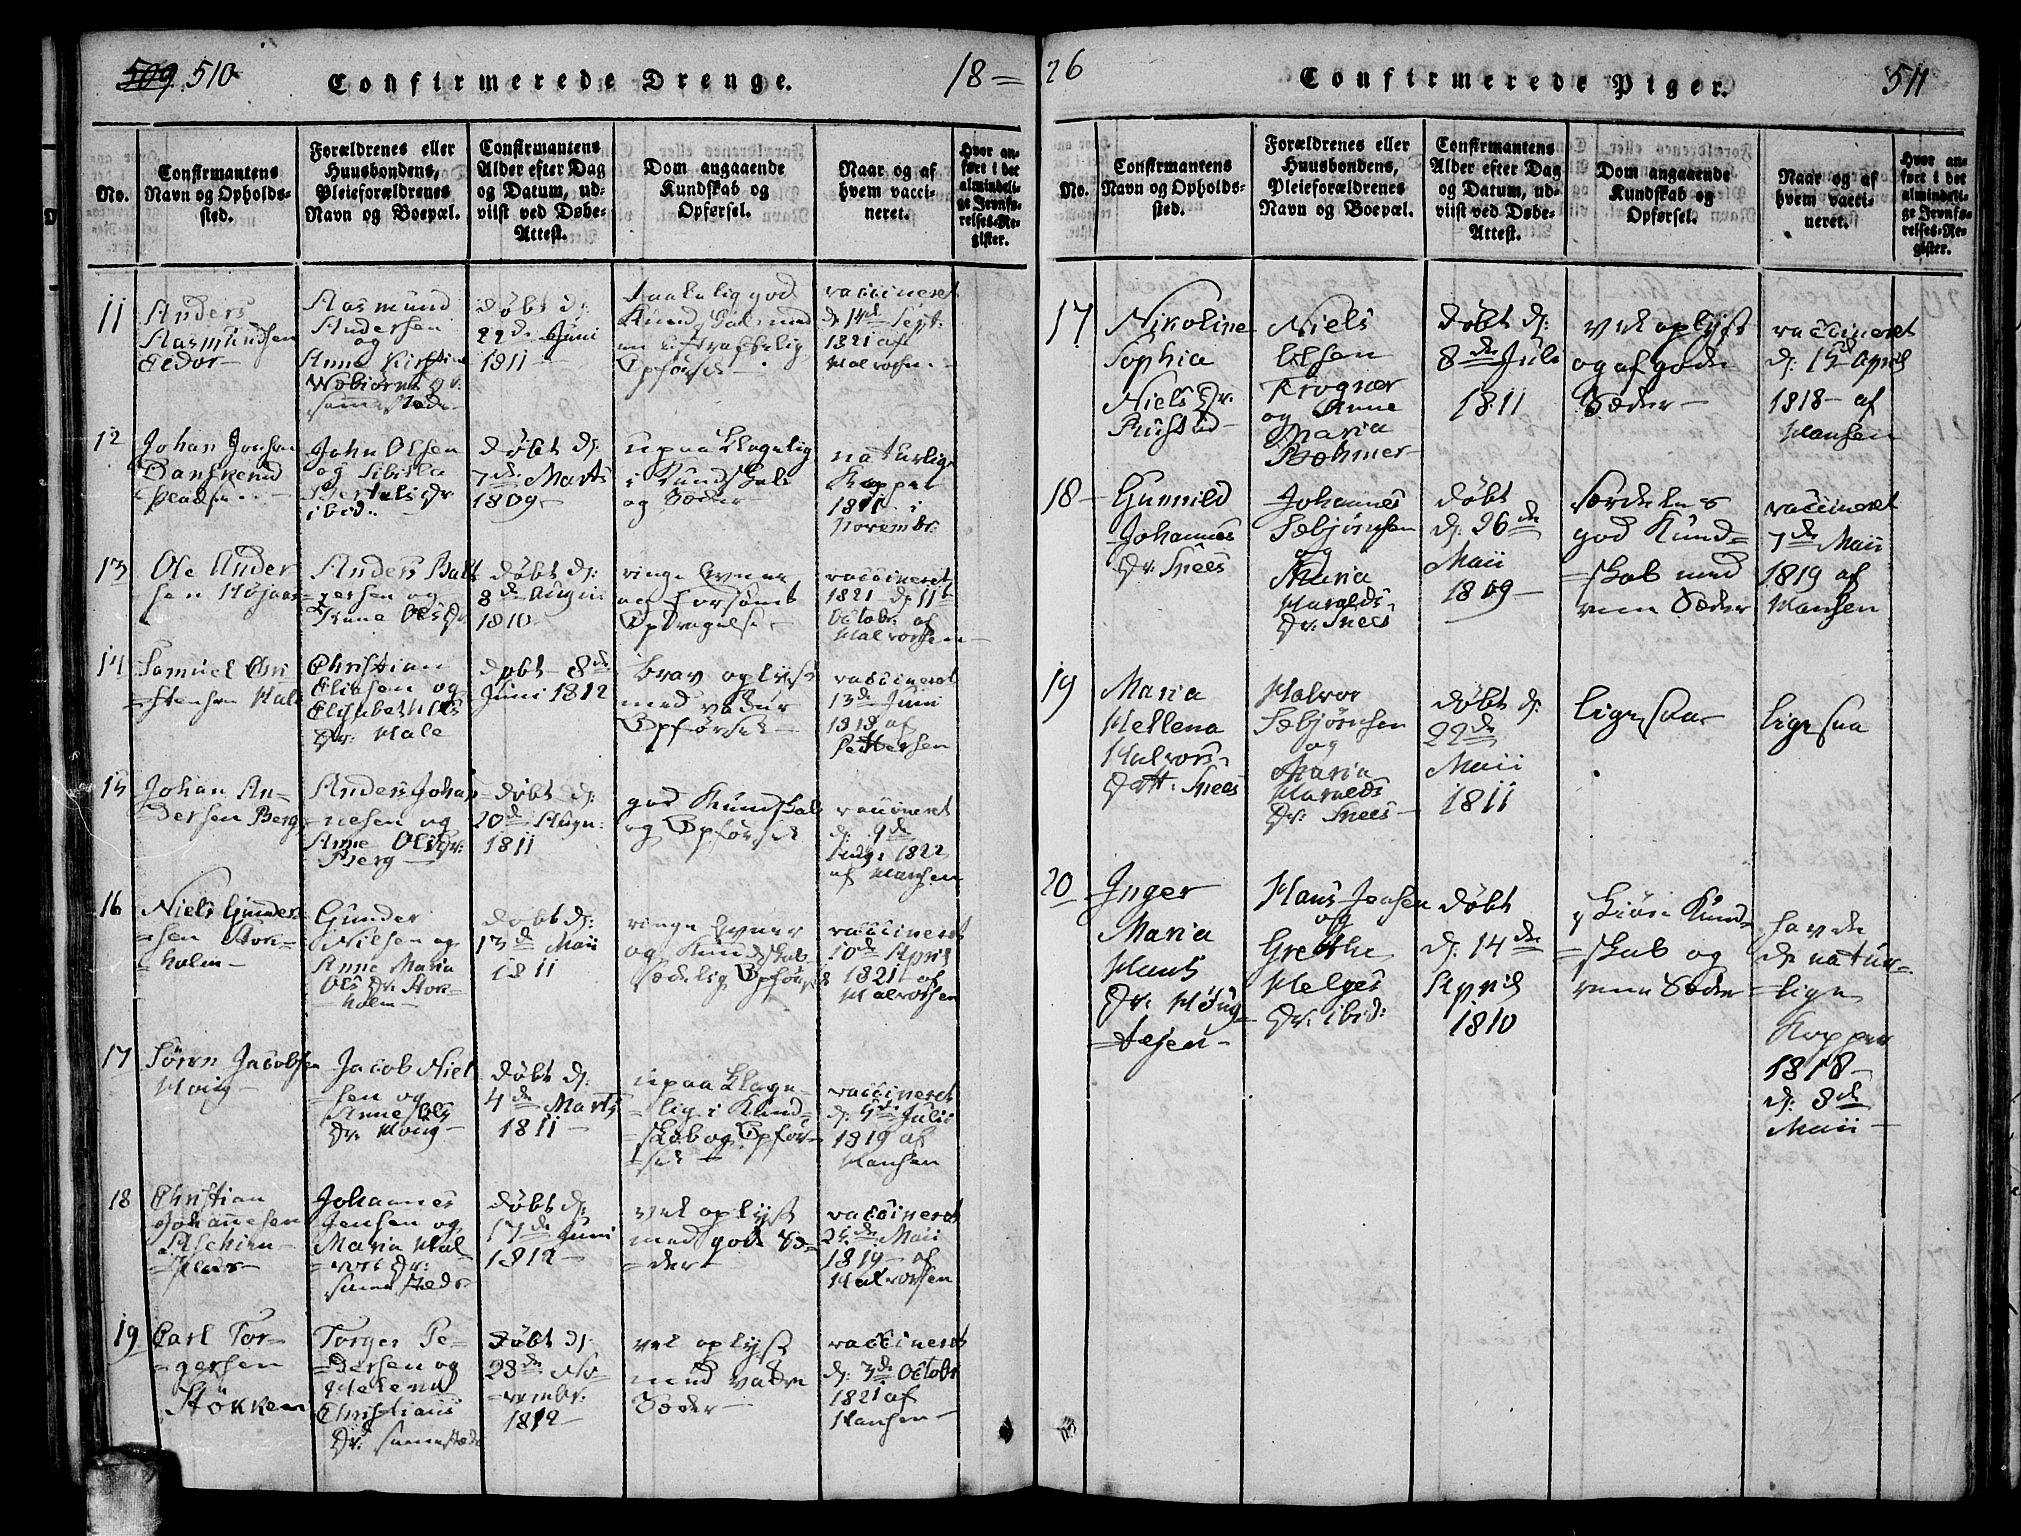 509 510
Confirmerede Drenge.
18=
No.
Confirmantens
Navn og Opholds-
sted.
Forældrenes eller
Huusbondens,
Pleieforældrenes
Navn og Boepæl.
Confirmantens
Alder efter Dag
og Datum, ud-
viist ved Døbe-
Attest.
Dom angaaende
Kundskab og
Opførsel.
Naar og af
hvem vacci-
neret.
Hvor an-
ført i det
almindeli-
ge Jevnfø-
relses-Re-
gister.
11
Anders
Aasmundsen
Aasmund
Andersen
og
Anne
sammestæds
døbt d:
22de Juni
1811
god
Kundskab med
en
Opførsel
vaccineret
d: 14de Sept.
1821 af
Halvorsen
12
Johan Jonsen
John Olsen
og Sibilla
Bertels Dr
ibid.
døbt d:
7de Marts
1809
upaaklagelig
i Kundskab
og Sæder
naturlige
Kopper
1811 i
Novembr.
13
Ole Ander
sen
Anders Balt
zersen og
Anne Ols Dr.
døbt d:
8de Augu
1810
ringe Evner
og forsømt
Opdragelse
vaccineret
1821 d: 11te
Octobr. af
Halvorsen
14
Samuel Chri
=stensen Hale
Christian
Eliasen og
Elisabeth Ols
Dr. Hale
døbt 8de
Juni 1812
brav oplyst
med
Opførsel
vaccineret
13de Juni
1818 af
Pettersen
15
Johan An-
dersen Berg
Anders Johan
=nesen og
Anne Ols Dr:
Berg
døbt d:
20de Augu:
1811
god Kundskab
og Opførsel
vaccineret
d: 9de
1822
af Hansen
16
Niels Gunder
=sen Stor-
=holm
Gunder
Nilsen og
Anne Maria
Ols Dr. Stor-
holm
døbt d:
13de Maii
1811
ringe Evner
og Kundskab
Sædelig Opførsel
vaccineret
10de April
1821 af
Halvorsen
17
Søren Jacobsen
Houg
Jacob Niel
=sen og
Anne Ols
Dr. Houg
døbt d:
4de Marts
1811
upaaklage
=lig i Kund=
=skab og Opfør-
=sel
vaccineret
d: 5te Julii
1819 af
Hansen
18
Christian
Johannesen
Johannes
Jensen og
Maria Hal
=vors Dr:
sammestæds
døbt d:
17de Juni
1812
vel oplyst
med gode Sæ=
=der
vaccineret
25de Maii
1819 af
Halvorsen
19
Carl Tor-
=gersen
Støkken
Torger Pe-
=dersen og
Helena
Christians
Dr. sammestæds
døbt d:
28de No
=vembr.
1812
vel oplyst
med
Sæder
vaccineret
d: 3de Octobr
1821 af
Hansen
26
Confirmerede Piger.
511
No.
Confirmantens
Navn og Opholds-
sted.
Forældrenes eller
Huusbondens,
Pleieforældrenes
Navn og Boepæl.
Confirmantens
Alder efter Dag
og Datum, ud-
viist ved Døbe-
Attest.
Dom angaaende
Kundskab og
Opførsel.
Naar og af
hvem vacci-
neret.
Hvor an-
ført i det
almindeli-
ge Jevnfø-
relses-Re-
gister.
17
Nikoline
Sophia
Niels Dr.
Rustad
Niels
Olsen
Krognær
og Anne
Maria
Bøhmer
døbt d:
8de Juli
1811
vel oplyst
og af gode
Sæder
vaccineret
d: 15de April
1818 af
Hansen
18
Gunnild
Johannes
Dr. Snees
Johannes
Sebjørnsen
og
Maria
Haralds
Dr. Snees
døbt
d: 26de
Maii
1809
Særdeles
god Kund=
=skab med
rene Sæder
vaccineret
7de Maii
1819 af
Hansen
19
Maria
Hellena
Halvors
Datt. Snees
Halvor
Sebjørnsen
og
Maria
Haralds
Dr: Snees
døbt d:
22de
Maii
1811
ligesaa
ligesaa
20
Inger
Maria
Hans
Dr. Høug
=tejen
Hans Jensen
og
Grethe
Helges
Dr. ibid:
døbt
d: 14de
April
1810
skiøn Kund
=skab og
rene Sæder
havde
de natur=
=lige
Kopper
1818
d: 8de
Maii